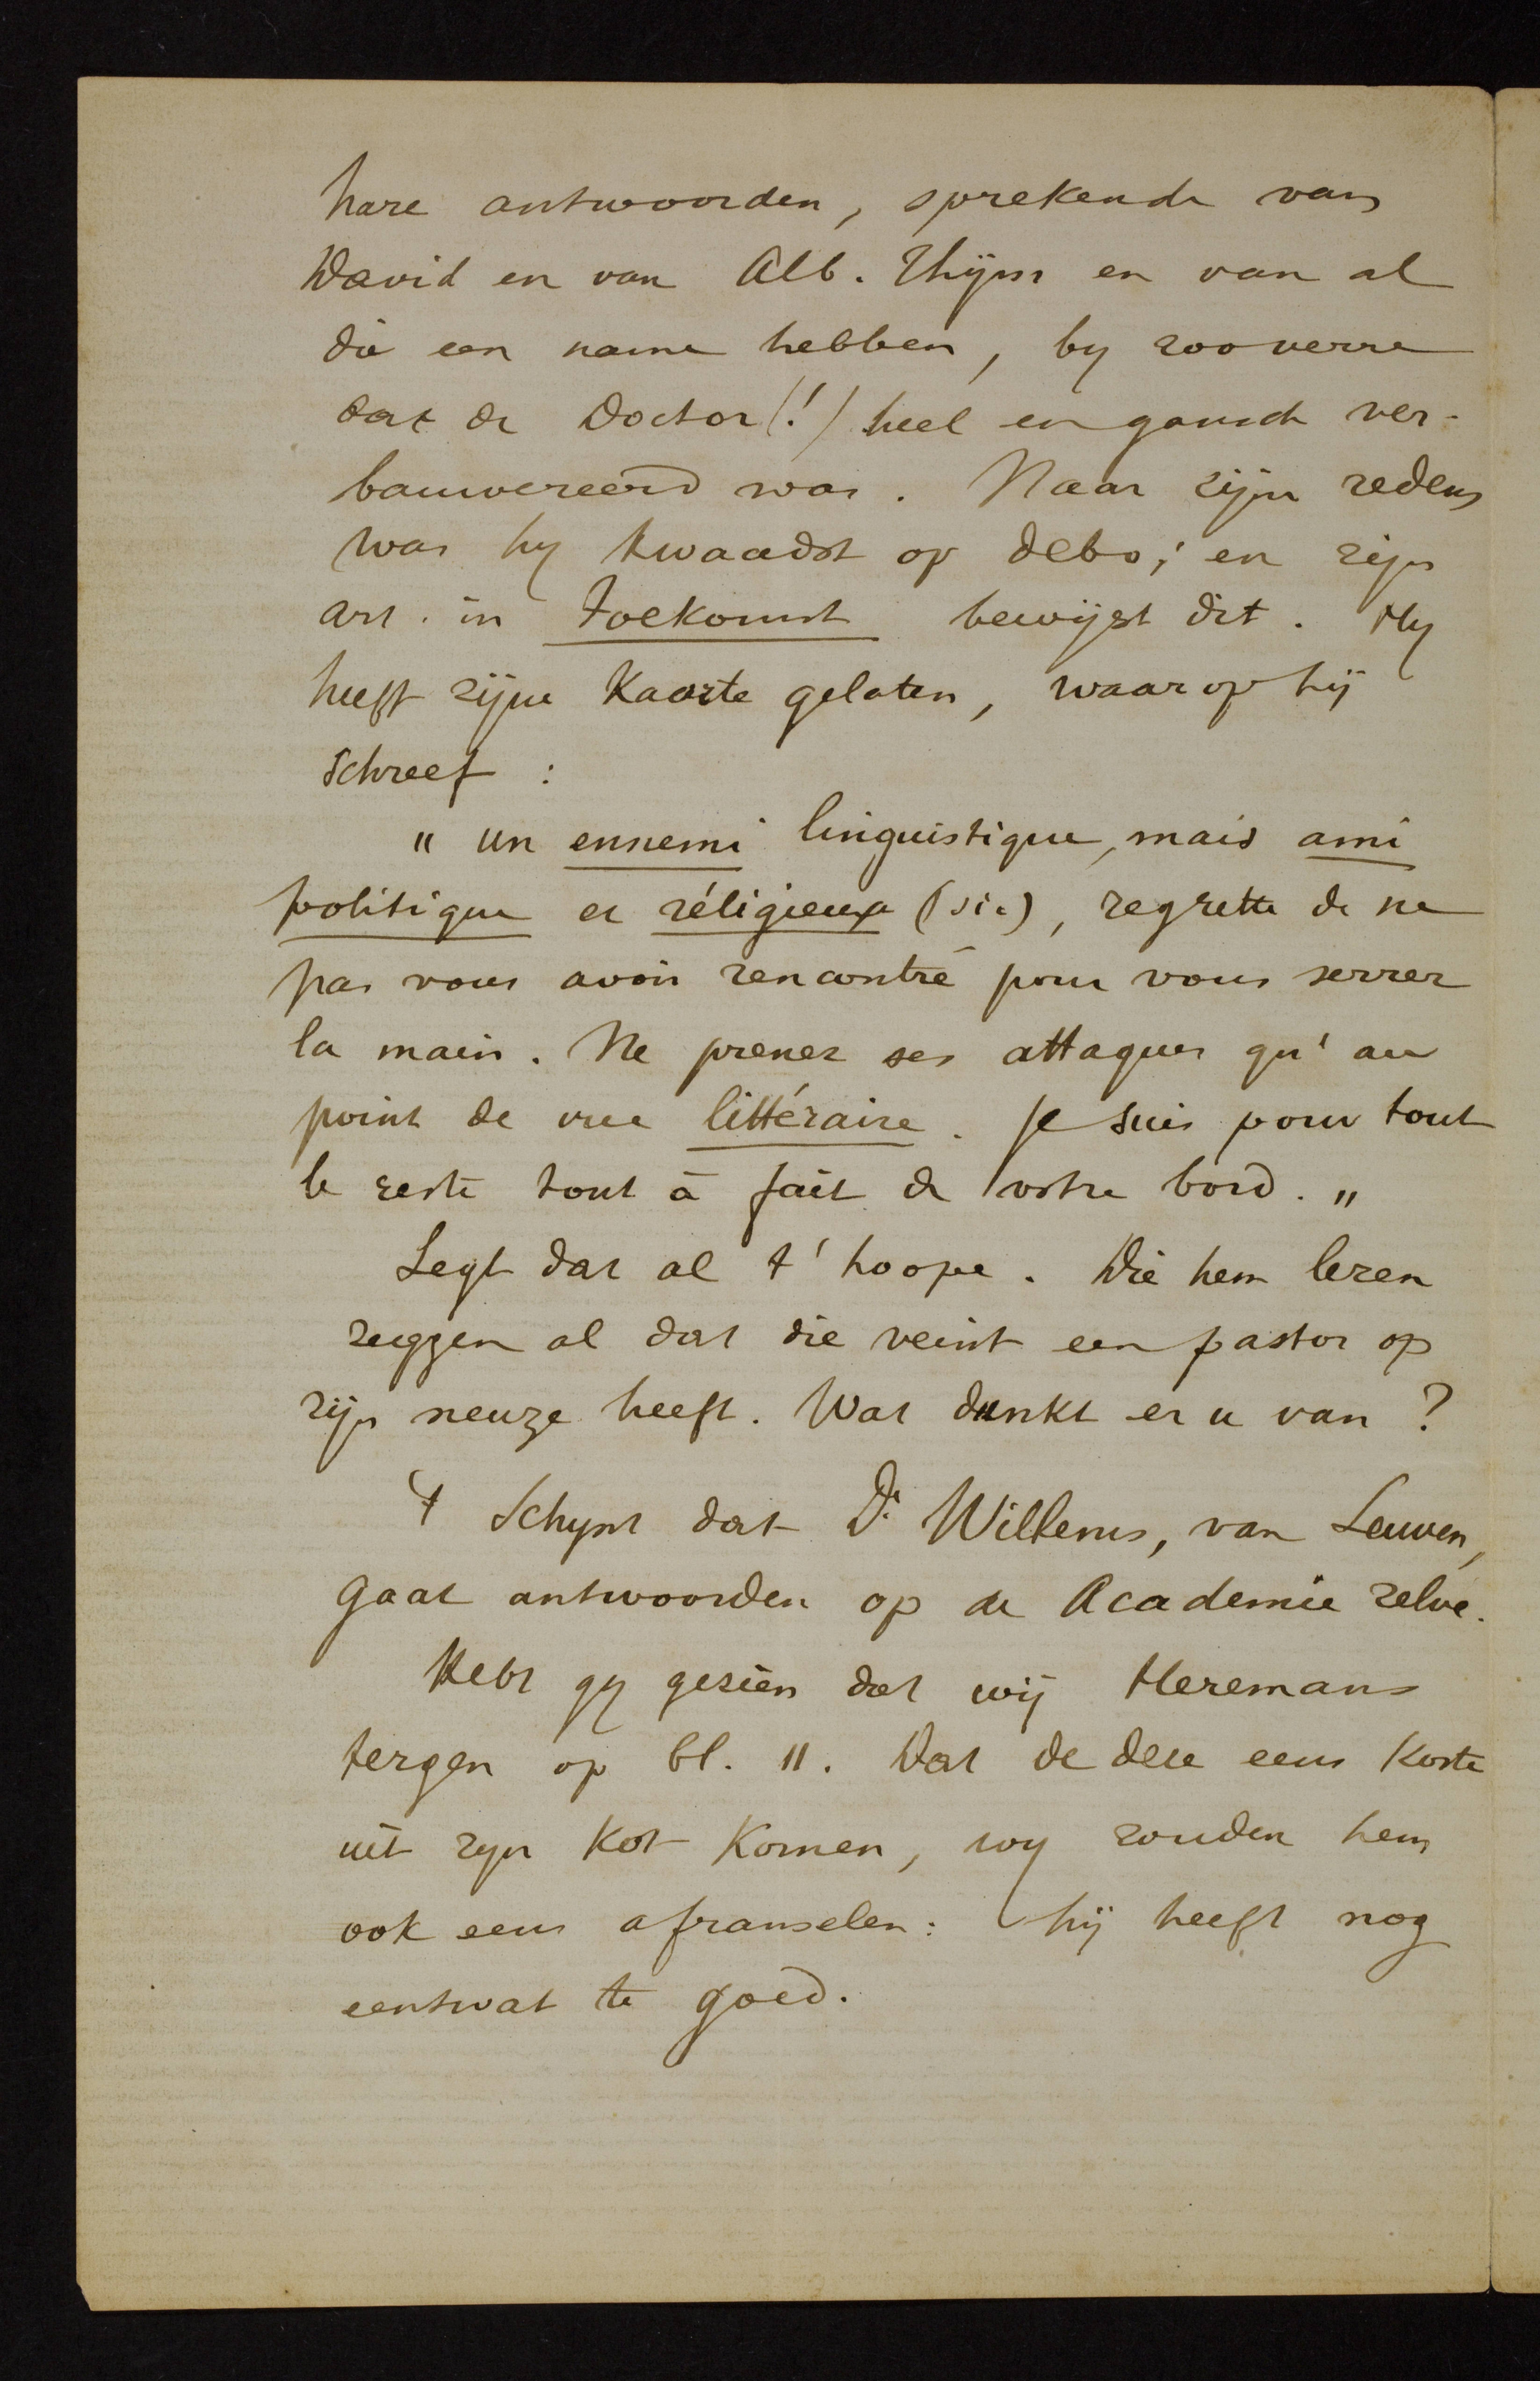 hare antwoorden, sprekende van
David en van Alb. Thijm en van al
die een name hebben, by zooverre
dat de Doctor (!) heel en gansch ver-
bauwereerd was. Naar zijn redens
was hy kwaadst op Debo; en zijn
art. in Toekomst bewijst dit. Hy
heeft zijne Kaarte gelaten, waarop hij
schreef :
" un ennemi linguistique, mais ami
politique et réligieux (sic), regrette de ne
pas vous avoir rencontré pour vous serrer
la main. Ne prenez ses attaques qu'au
point de vue littéraire. Je suis pour tout
le reste tout à fait de votre bord. "
Legt dat al t'hoope. Die hem lezen
zeggen al dat die veint een pastor op
zijn neuze heeft. Wat dunkt er u van ?
't Schynt dat Dr Willems, van Leuven,
gaat antwoorden op de Academie zelve.
Hebt gy gezien dat wij Heremans
tergen op bl. 11. Dat de deze eens koste
uit zyn Kot Komen, wy zouden hem
ook eens afranselen: hij heeft nog
eentwat te goed.